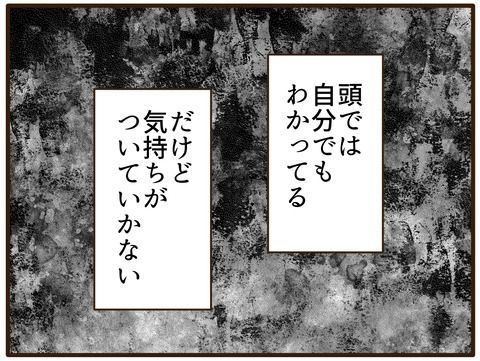 頭では
自分でも
わかってる
だけど
気持ちが
ついていかない